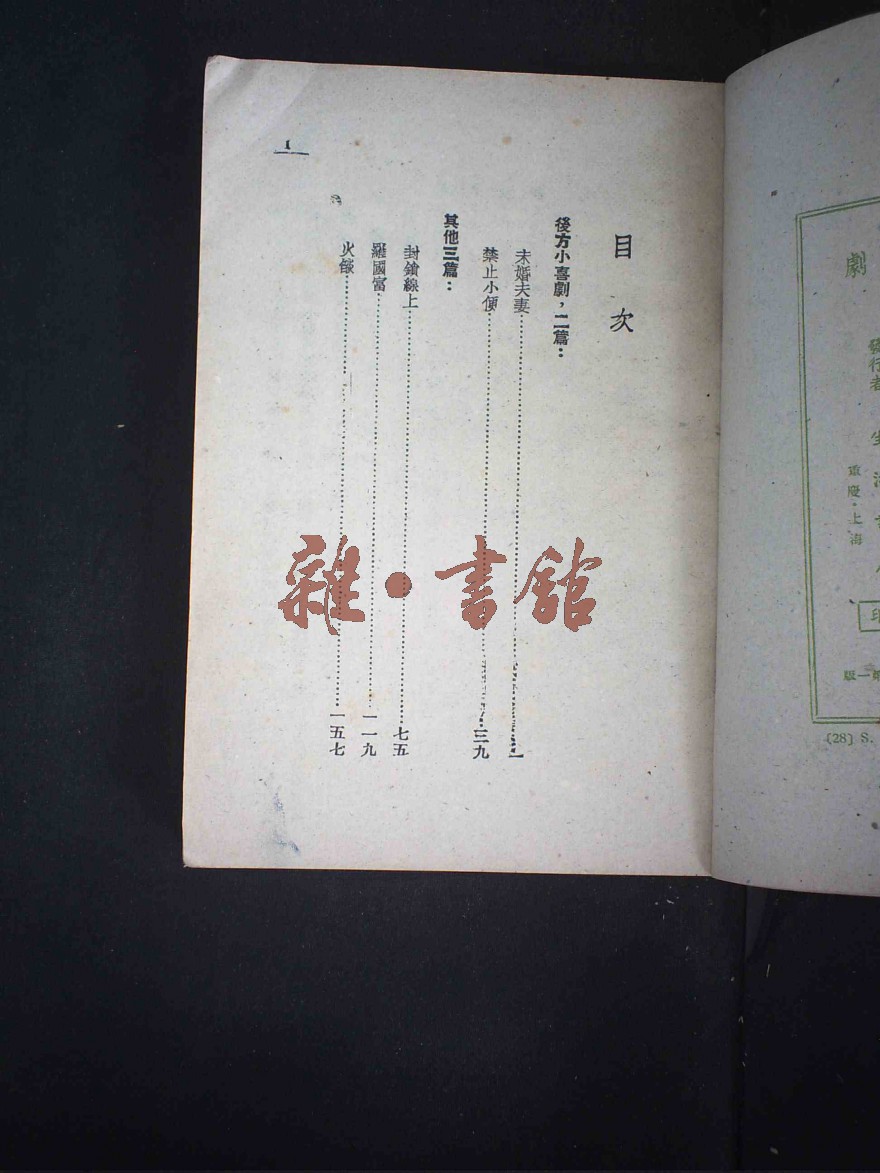 目次
後方小喜劇，二篇：
未婚夫妻……一
禁止小便……三九
其他三篇：
封鎖線上……七五
羅國富……一一九
火燄……一五七
1
雜·書舘
劇
發行者
重慶·上海
印
第一版
(28) S.